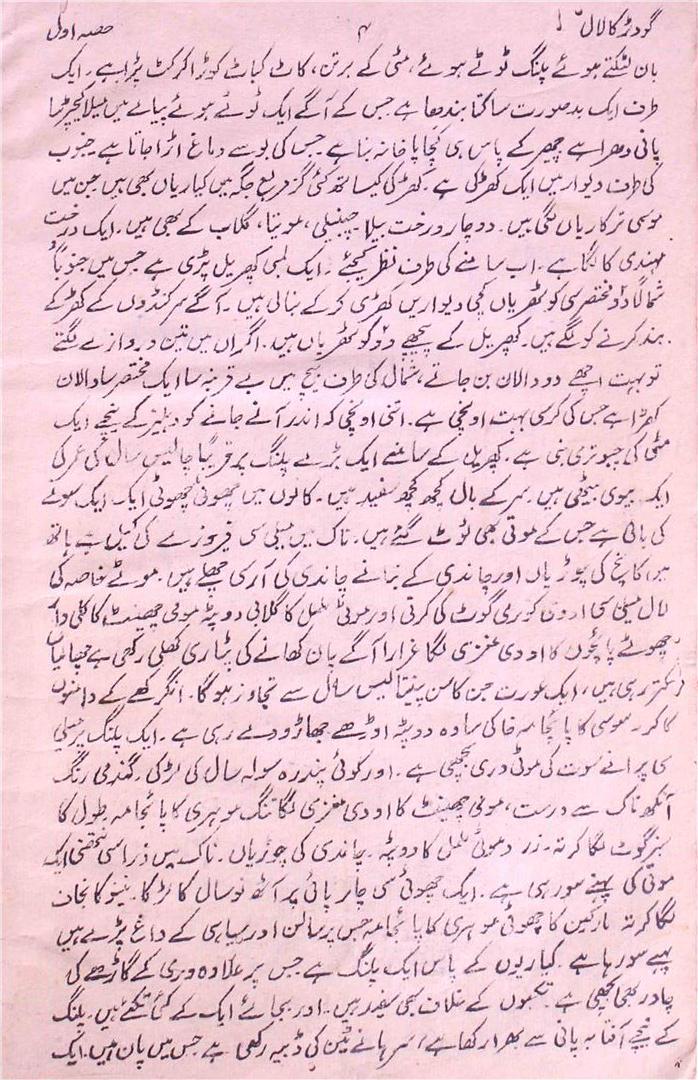 گودڑ کا لال ۴ حصہ اول
بان لٹکتے ہوئے پلنگ ٹوٹے ہوئے، مٹی کے برتن، کاٹ کباٹ کوڑا کرکٹ پڑا ہے۔ ایک
طرف ایک بدصورت سا کتا بندھا ہے جس کے آگے ایک ٹوٹے ہوئے پیالے میں میلا کچیلا
پانی دھرا ہے چھپر کے پاس ہی کچا پاخانہ بنا ہے جس کی بو سے دماغ اڑا جاتا ہے جنوب
کی طرف دیوار میں ایک کھڑکی ہے۔ کھڑکی کیساتھ کئی گز مربع جگہ میں کیاریاں بھی ہیں جن میں
موسمی ترکاریاں لگی ہیں۔ دو چار درخت بیلا چنبیلی، موتیا، گلاب کے بھی ہیں۔ ایک درخت
مہندی کا لگا ہے۔ اب سامنے کی طرف نظر کیجئے۔ ایک لمبی کھپریل پڑی ہے جس میں جنوباً و
شمالاً دو مختصر سی کوٹھریاں کچی دیواریں کھڑی کر کے بنالی ہیں۔ آگے سرکنڈوں کے کھڑکے
بند کرنے کو لگے ہیں۔ کھپریل کے پیچھے دو کوٹھڑیاں ہیں۔ اگر ان میں تین دروازے لگتے
تو بہت اچھے دو دالان بن جاتے، شمال کی طرف بیچ میں بے قرینہ سا ایک مختصر سا دالان
کھڑا ہے جس کی کرسی بہت اونچی ہے۔ اتنی اونچی کہ اندر آنے جانے کو دہلیز کے نیچے ایک
مٹی کی چبوتری بنی ہے۔ کھپریل کے سامنے ایک بڑے پلنگ پر قریباً چالیس سال کی عمر کی
ایک بیوی بیٹھی ہیں۔ سر کے بال کچھ کچھ سفید ہیں۔ کانوں میں چھوٹی چھوٹی ایک ایک سونے
کی بالی ہے جس کے موتی بھی ٹوٹ گئے ہیں۔ ناک میں میلی سی فیروزے کی کیل ہے ہاتھ
میں کانچ کی چوڑیاں اور چاندی کے بنانے چاندی کی آرسی چھلے ہیں۔ موٹے خاصہ کی
لال میلی سی اودی گوٹ کی کرتی اور موٹی ململ کا گلابی دوپٹہ مومی چھینٹ کا کلی دار
چھوٹے پائچوں کا اودی مغزی لگا غرارا آگے پان کھانے کی پٹاری کھلی رکھی ہے چھالیاں
کتر رہی ہیں، ایک عورت جن کا سن پینتالیس سال سے تجاوز ہوگا۔ انگرکھے کے دامنوں
کا کرتہ سوسی کا پائجامہ خاکی سادہ دوپٹہ اوڑھے جھاڑو دے رہی ہے۔ ایک پلنگ پر میلی
سی پرانے سوت کی موٹی دری بچھی ہے۔ اور کوئی پندرہ سولہ سال کی لڑکی۔ گندمی رنگ
آنکھ ناک سے درست، مومی چھینٹ کا اودی مغزی لگا تنگ موہری کا پائجامہ طول کا
سبز گوٹ لگا کرتہ۔ زرد موٹی ململ کا دوپٹہ۔ چاندی کی چوڑیاں۔ ناک میں ذرا سی نتھنی ایک
موتی کی پہنے سو رہی ہے۔ ایک چھوٹی سی چارپائی پر آٹھ نو سال کا لڑکا۔ نینو کا نجاف
لگا کرتہ مارکین کا چھوٹی موہری کا پائجامہ جس پر سالن اور سیاہی کے داغ پڑے ہیں
پہنے سو رہا ہے۔ کیاریوں کے پاس ایک پلنگ ہے جس پر علاوہ دری کے گاڑھے کی
چادر بھی بچھی ہے۔ تکیوں کے غلاف بھی سفید ہیں۔ اور بجائے ایک کے کئی تکیے ہیں۔ پلنگ
کے نیچے آفتابہ پانی سے بھرا رکھا ہے، سرہانے ٹین کی ڈبیہ رکھی ہے جس میں پان ہیں۔ ایک